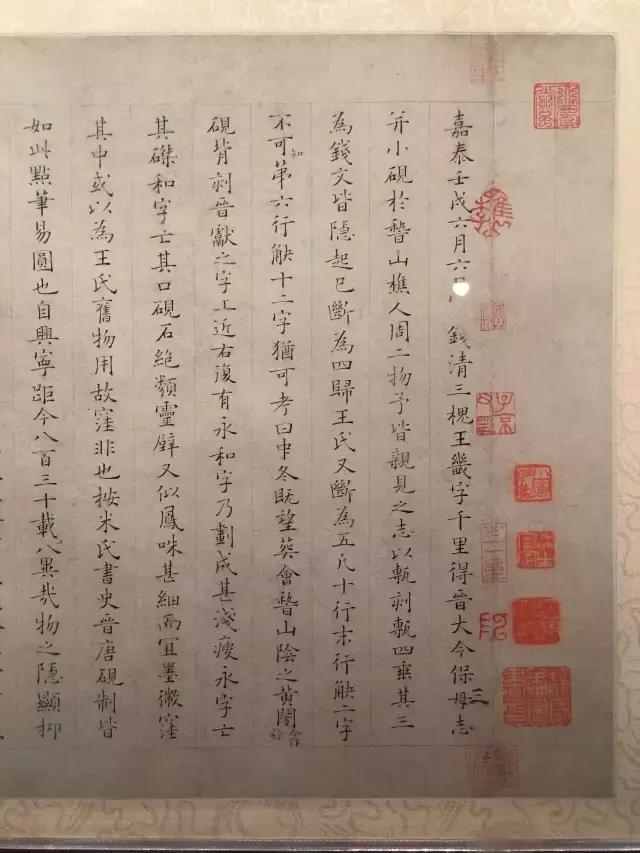 嘉泰壬戌六月六日錢清三槐王畿字千里得晉大令保母志三
并小硯於稽山樵人周二物予皆親見之志以甎刻甎四垂其三
為錢文皆隱起已斷為四歸王氏又斷為五凡十行末行缺二字
不可知第六行缺十二字猶可考曰中冬既望葬會稽山陰之黃閍
硯背刻晉獻之字上近右復有永和字乃劃成甚淺瘦永字亡
其磔和字亡其口硯石絕類靈璧又似鳳咮甚細而宜墨微窪
其中或以為王氏舊物用故窪非也按米氏書史晉唐硯制皆
如此點筆易圓也自興寧距今八百三十載八異哉物之隱顯抑